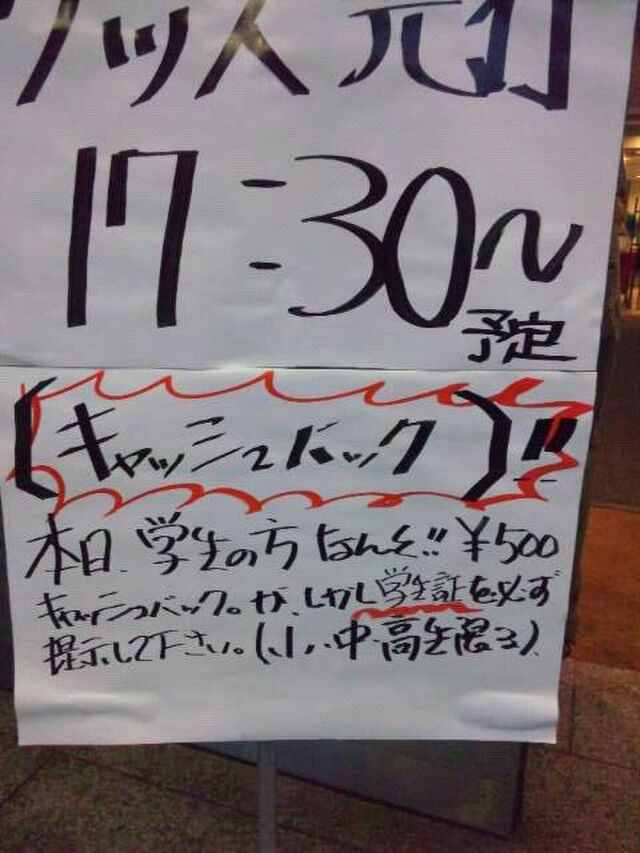 グッズ先行
17:30〜
予定
(キャッシュバック)!!
本日、学生の方なんと!! ¥500
キャッシュバック。が、しかし学生証を必ず
提示して下さい。(小・中・高生限る)、